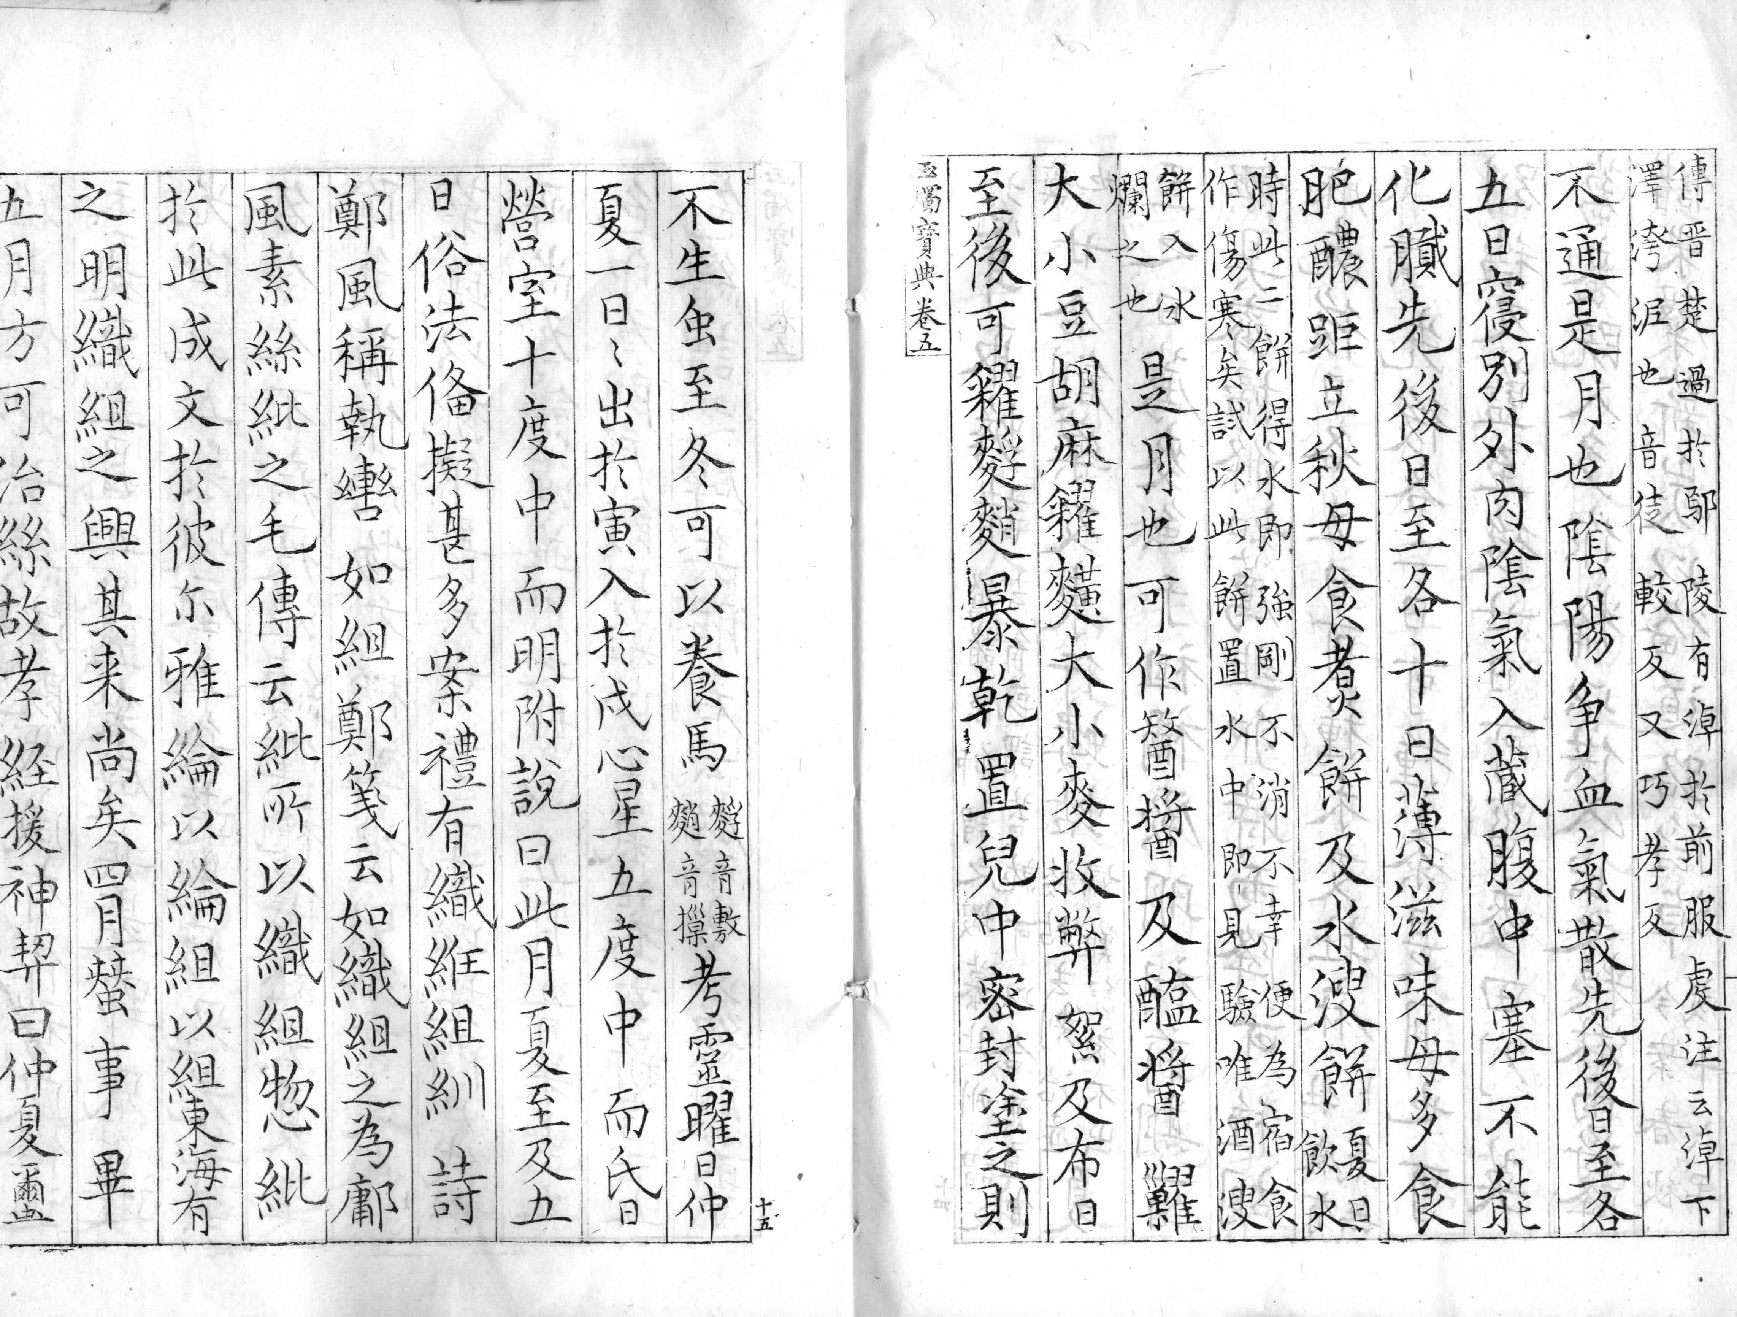 傳晋楚過於鄢陵有淖於前服虔注云淖下
澤洿泥也音徒較反又巧孝反
不通是月也陰陽争血氣散先後日至各
五日寑別外内陰氣入蔵腹中塞不能
化膱先後日至各十日薄滋味毋多食
肥醲距立秋毋食煮餅及水溲餅夏日飲水
時此二餅得水即強剛不消不幸便為宿食
作傷寒矣試以此餅置水中即見驗唯酒溲
餅入水
爛之也是月也可作䜴醬及醢醬糶
大小豆胡麻糴䵃大小麥收弊絮及布日
至後可糴䴸䴬暴乾置兒中密封塗之則
玉燭寳典卷五
不生虫至冬可以養馬䴸音敷䴬音㩰考靈曜曰仲
夏一日〻出於寅入於戌心星五度中而氐日
營室十度中而明附説曰此月夏至及五
日俗法俻擬甚多案禮有織紝組紃詩
鄭風稱執轡如組鄭箋云如織組之為鄘
風素絲紕之毛傳云紕所以織組惣紕
於此成文於彼尓雅綸以綸組以組東海有
之明織組之興其来尚矣四月蠶事畢
五月方可治絲故孝経援神契曰仲夏璽
十五